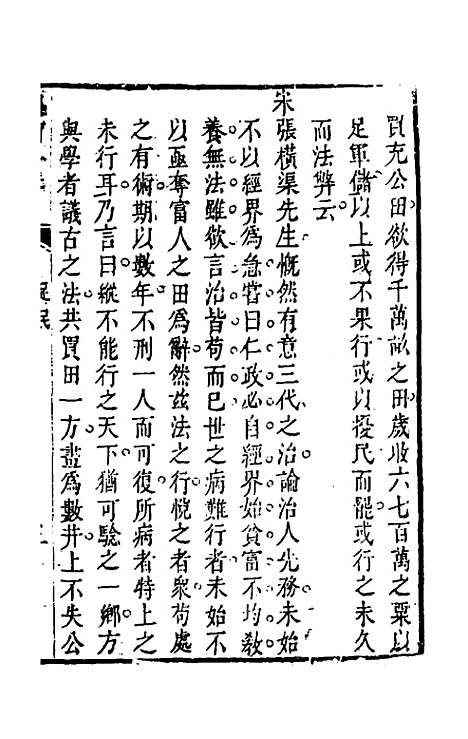 買充公田欲得千萬畝之田歲收六七百萬之粟以
足軍儲以上或不果行或以擾民而罷或行之未久
而法弊云
宋張橫渠先生慨然有意三代之治論治人先務未始
不以經界爲急嘗曰仁政必自經界始貧富不均敎
養無法雖欲言治皆苟而已世之病難行者未始不
以亟奪富人之田爲辭然茲法之行悅之者衆苟處
之有術期以數年不刑一人而可復所病者特上之
未行耳乃言曰縱不能行之天下猶可驗之一鄉方
與學者議古之法共買田一方畫爲數井上不失公